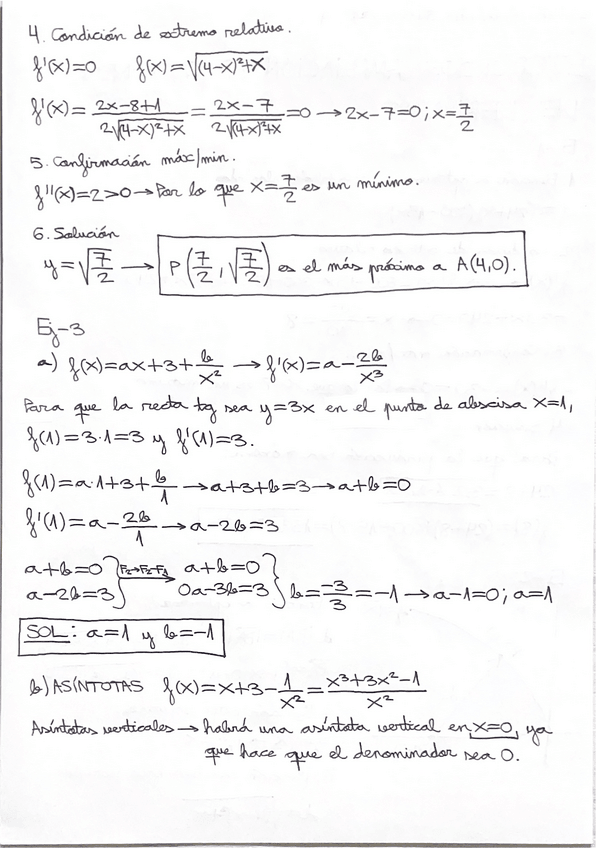 4. Condición de extremo relativo.
f'(x)=0 f(x)=√((4-x)²+x)
f'(x)= (2x-8+1)/(2√((4-x)²+x)) = (2x-7)/(2√((4-x)²+x)) =0 → 2x-7=0; x=7/2
5. Confirmación máx/min.
f''(x)=2>0 → Por lo que x=7/2 es un mínimo.
6. Solución
y=√(7/2) → P(7/2, √(7/2)) es el más próximo a A(4,0).
Ej-3
a) f(x)=ax+3+b/x² → f'(x)=a-2b/x³
Para que la recta tg sea y=3x en el punto de abscisa x=1,
f(1)=3·1=3 y f'(1)=3.
f(1)=a·1+3+b/1 → a+3+b=3 → a+b=0
f'(1)=a-2b/1 → a-2b=3
a+b=0 } F₂→F₂-F₁ a+b=0 } b=-3/3=-1 → a-1=0; a=1
a-2b=3 } → 0a-3b=3 }
SOL: a=1 y b=-1
b) ASÍNTOTAS f(x)=x+3-1/x²=(x³+3x²-1)/x²
Asíntotas verticales → habrá una asíntota vertical en x=0, ya
que hace que el denominador sea 0.